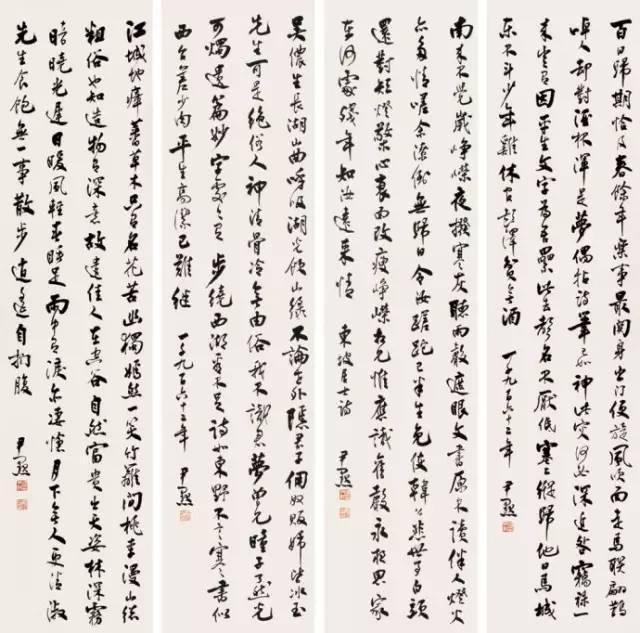 百日歸期恰及春餘年樂事最關身出門便旋風吹面走馬聯翩鵲
啅人却對酒杯渾是夢偶拈詩筆已如神此災何必深追咎竊祿從
來豈有因平生文字為吾累此去聲名不厭低塞上縱歸他日馬城
東不鬥少年雞休官彭澤貧無酒 一千九百六十二年 尹默
南來不覺歲崢嶸夜撥寒灰聽雨聲遮眼文書原不讀伴人燈火
亦多情嗟余潦倒無歸日今汝蹉跎已半生免使韓公悲世事白頭
還對短燈檠心衰面改瘦崢嶸相見惟應識舊聲永夜思家
在何處殘年知汝遠來情 東坡居士詩
吳儂生長湖山曲呼吸湖光飲山綠不論世外隱君子傭奴販婦皆冰玉
先生可是絕俗人神清骨冷無由俗我不識君夢曾見瞳子了然光
可燭遺篇妙字處處有步繞西湖看不足詩如東野不言寒書似
西臺差少肉平生高潔已難繼 一千九百六十二年 尹默
江城地瘴蕃草木只有名花苦幽獨嫣然一笑竹籬間桃李漫山總
粗俗也知造物有深意故遣佳人在空谷自然富貴出天姿林深霧
暗曉光遲日暖風輕春睡足雨中有淚亦凄愴月下無人更清淑
先生食飽無一事散步逍遙自捫腹 尹默